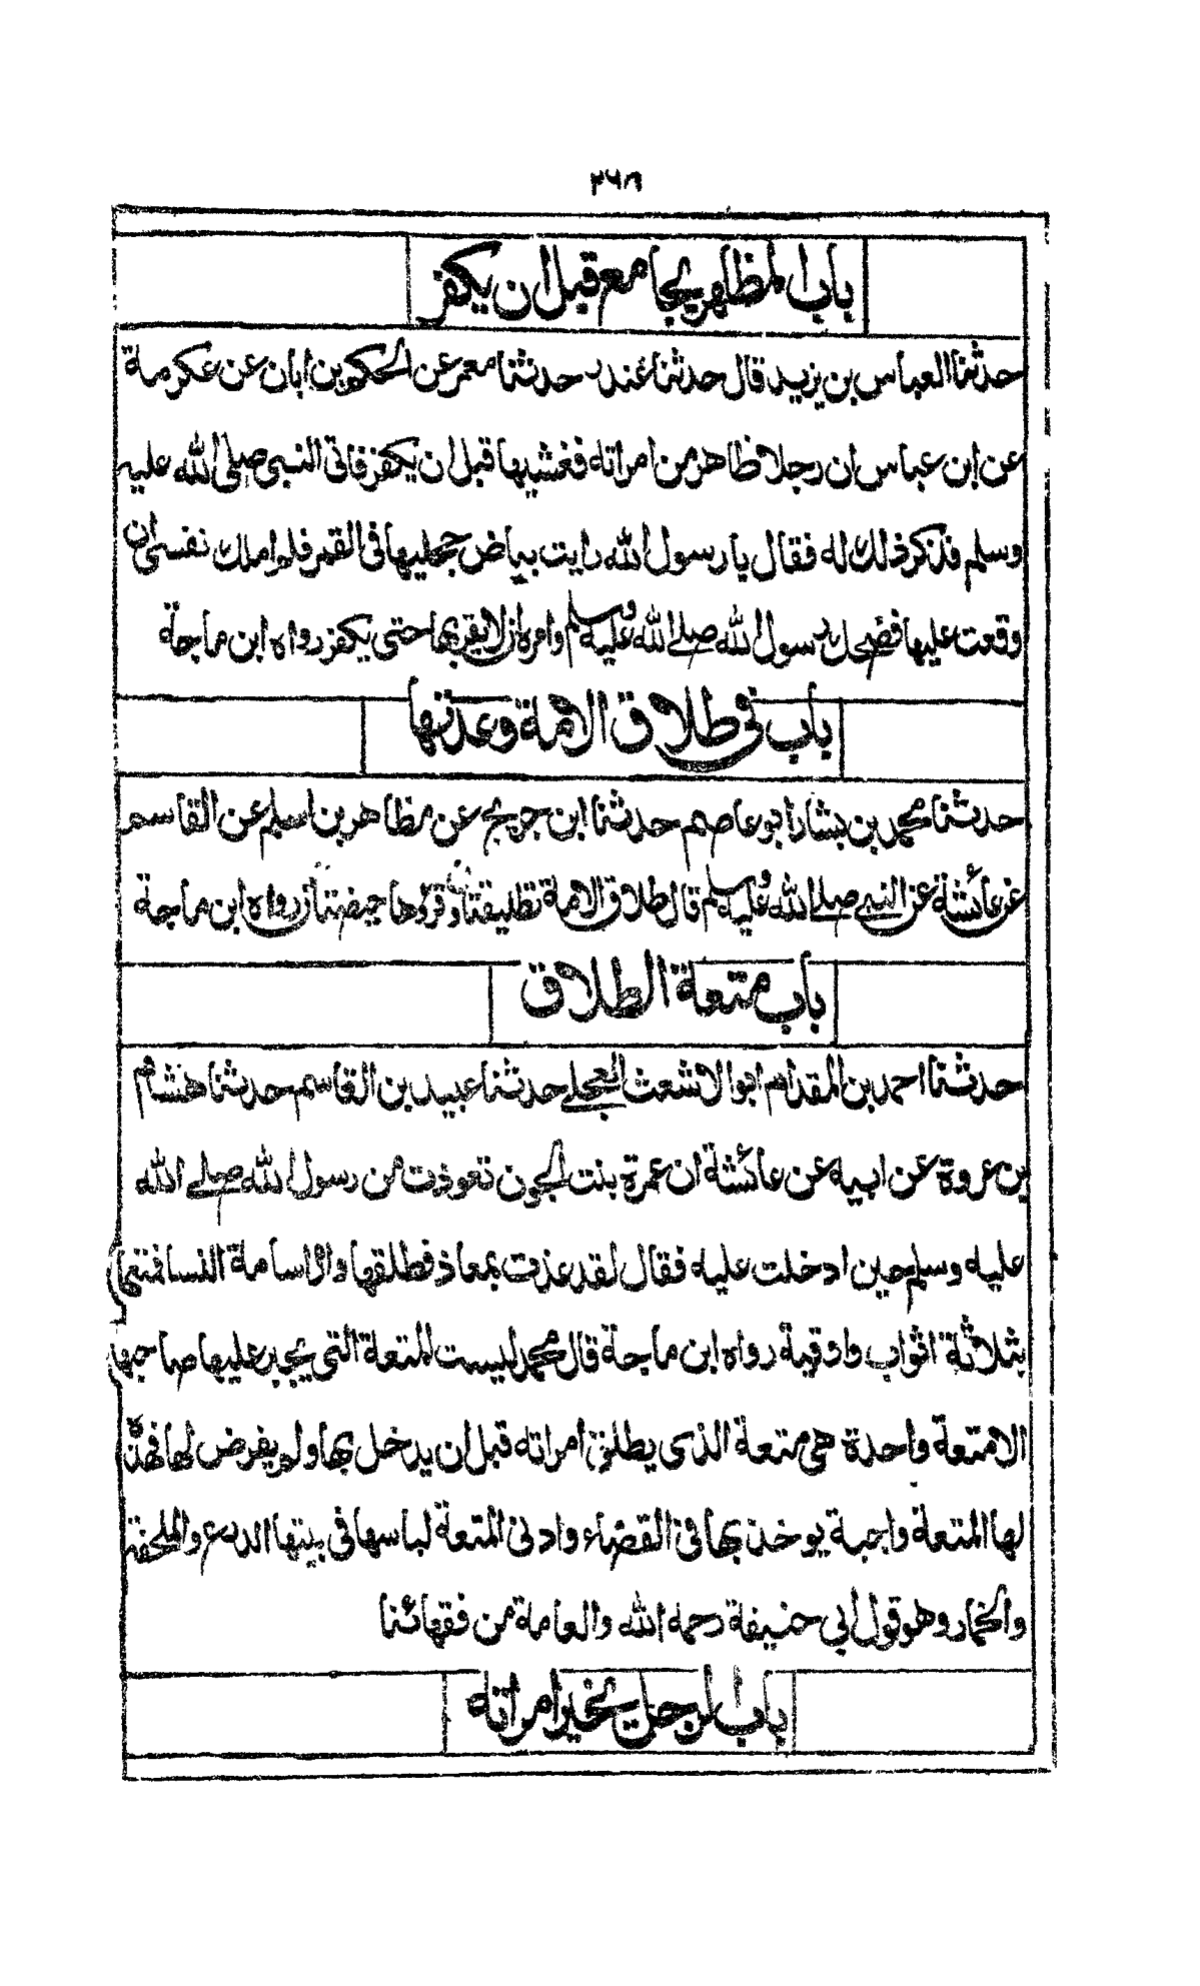 باب المظاهر يجامع قبل ان يكفر
حدثنا العباس بن يزيد قال حدثنا غندر حدثنا معمر عن الحكم بن ابان عن عكرمة
عن ابن عباس ان رجلا ظاهر من امراته فغشيها قبل ان يكفر فاتى النبي صلى الله عليه
وسلم فذكر ذلك له فقال يا رسول الله رايت بياض حجليها فى القمر فلم املك نفسى ان
وقعت عليها فضحك رسول الله صلے الله عليه وسلم وامره ان لا يقربها حتى يكفر رواه ابن ماجة
باب فى طلاق الامة وعدتها
حدثنا محمد بن بشار نا ابو عاصم حدثنا ابن جريج عن مظاهر بن اسلم عن القاسم
عن عائشة عن النبي صلے الله عليه وسلم قال طلاق الامة تطليقتان وقرؤها حيضتان رواه ابن ماجة
باب متعة الطلاق
حدثنا احمد بن المقدام ابو الاشعث العجلے حدثنا عبيد بن القاسم حدثنا هشام
بن عروة عن ابيه عن عائشة ان عمرة بنت الجون تعوذت من رسول الله صلے الله
عليه وسلم حين ادخلت عليه فقال لقد عذت بمعاذ فطلقها وامر اسامة او انسا فمتعها
بثلاثة اثواب واوقية رواه ابن ماجة قال محمد ليست المتعة التى يجبر عليها صاحبها
الا متعة واحدة هى متعة الذى يطلق امراته قبل ان يدخل بها ولم يفرض لها فهذه
لها المتعة واجبة يوخذ بها فى القضاء وادنى المتعة لباسها فى بيتها الدرع والملحفة
والخمار وهو قول ابى حنيفة رحمه الله والعامة من فقهائنا
باب الرجل يخير امراته